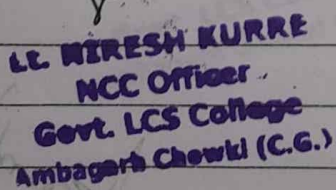 Lt. NIRESH KURRE
NCC Officer
Govt. LCS College
Ambagarh Chowki (C.G.)